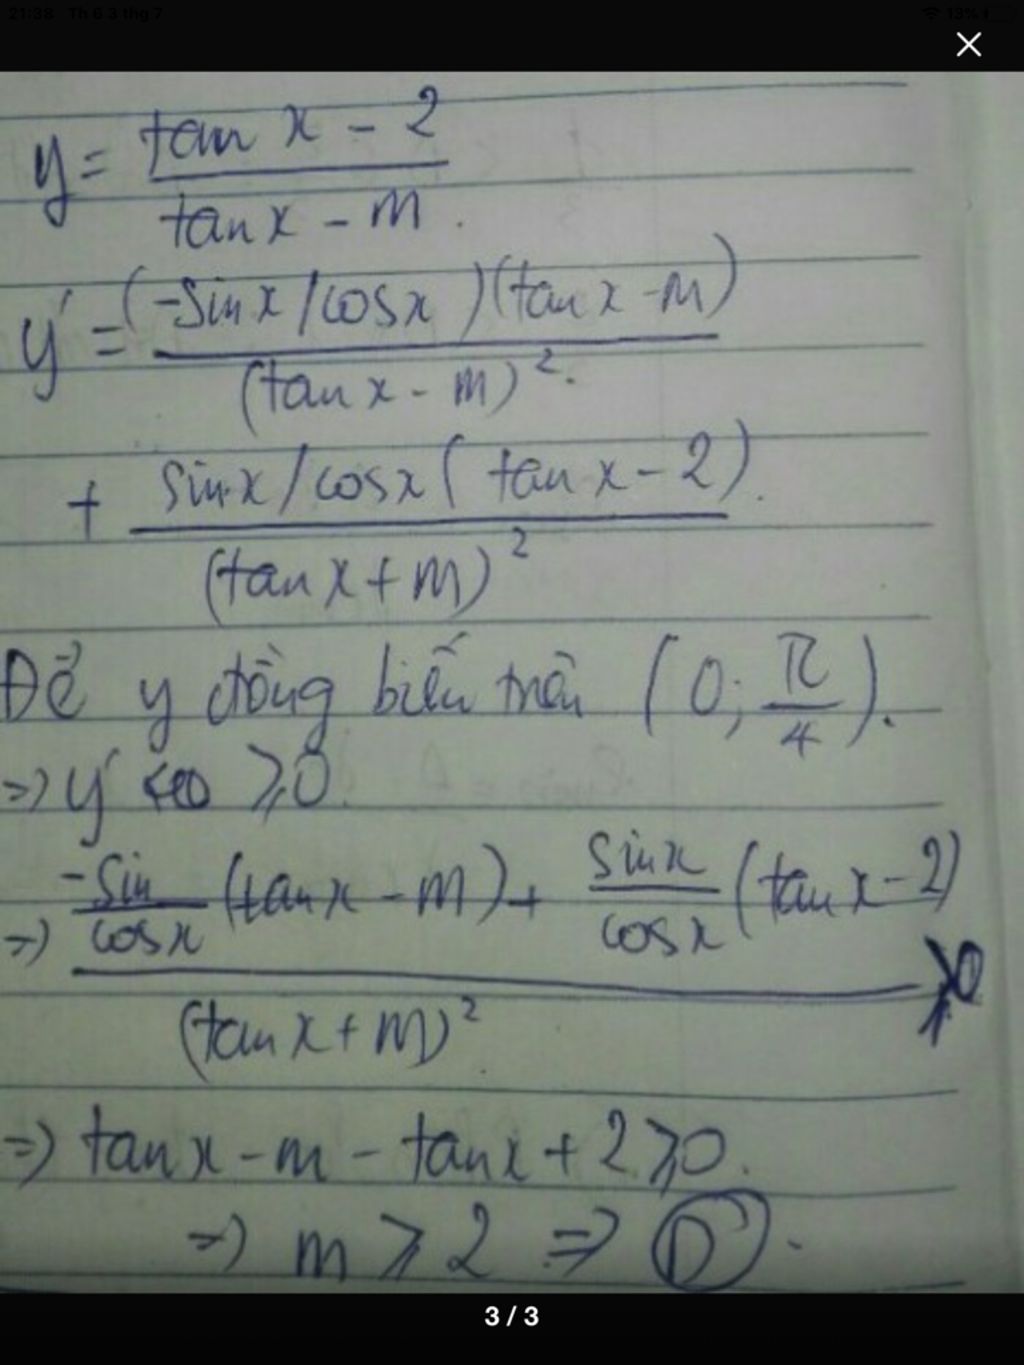 21:38 Th 6 3 thg 7 13%
y = (tan x - 2) / (tan x - m).
y' = (-sin x / cos x)(tan x - m) / (tan x - m)².
+ sin x / cos x (tan x - 2) / (tan x + m)².
Để y đồng biến trên (0; π/4).
=> y' ≥ 0.
=> (-sin / cos x (tan x - m) + sin x / cos x (tan x - 2)) / (tan x + m)² ≥ 0
=> tan x - m - tan x + 2 ≥ 0.
=> m ≥ 2 => D.
3 / 3